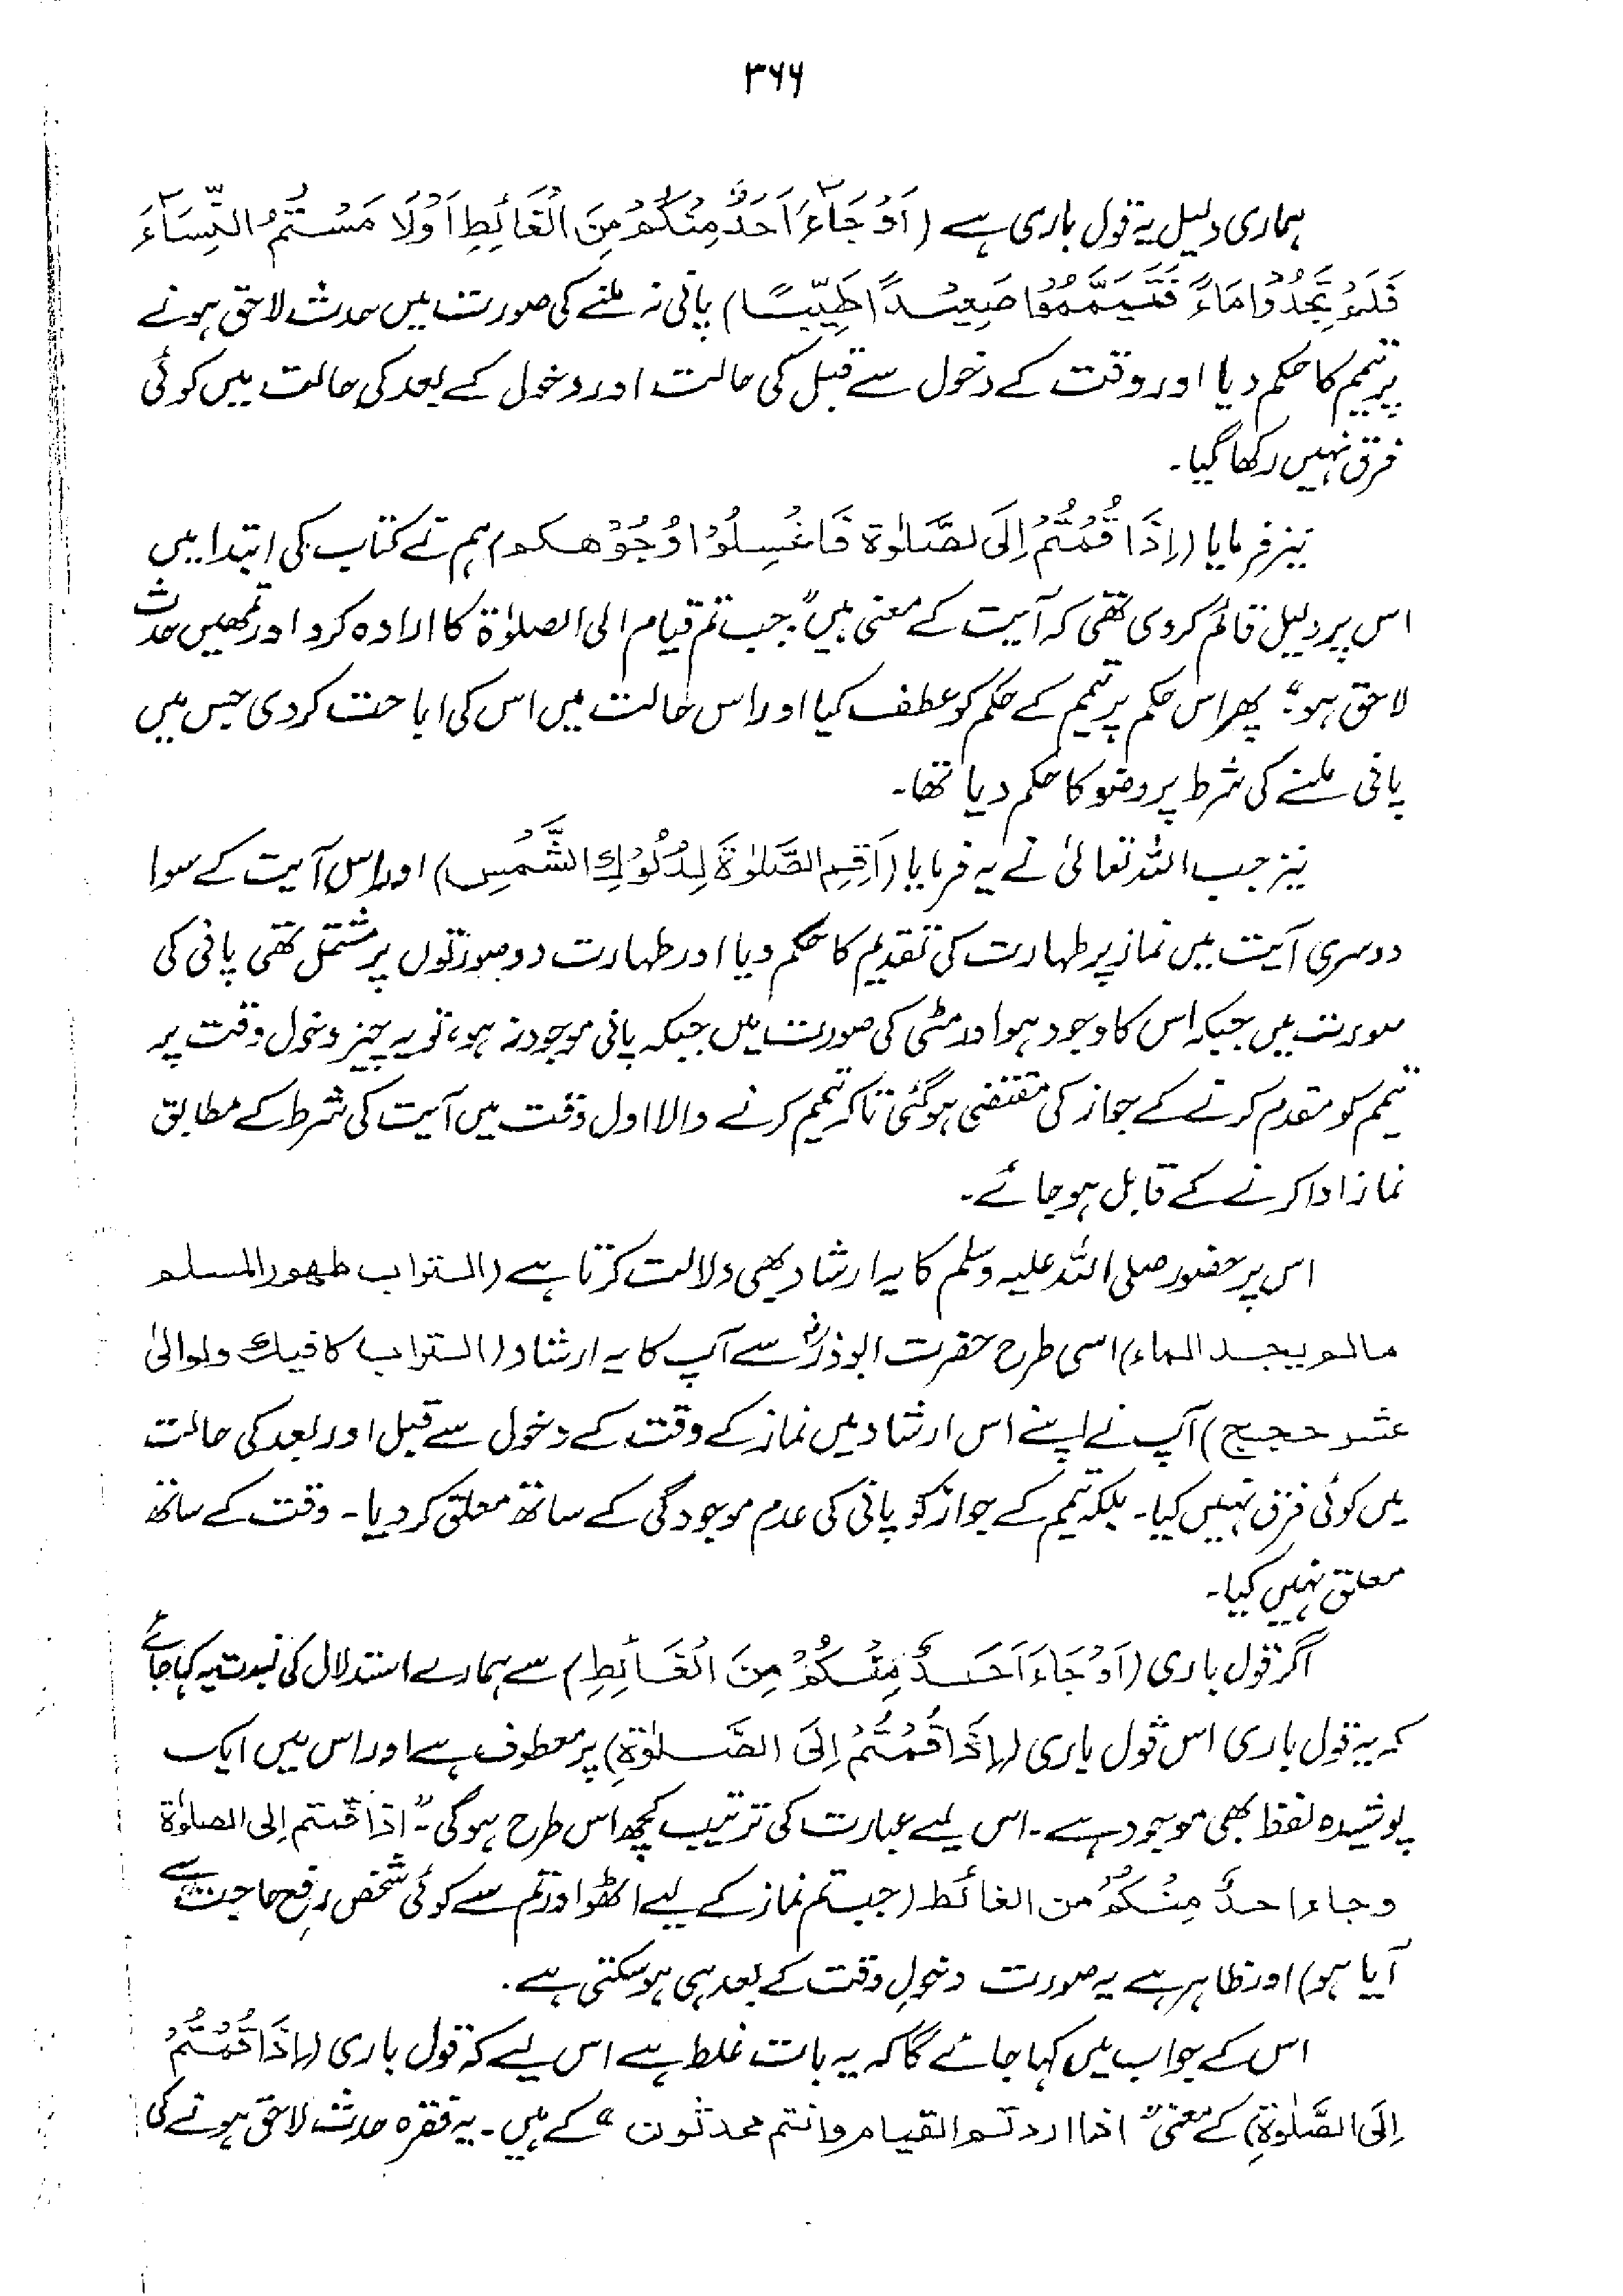 ۳۶۶
ہماری دلیل یہ قول باری ہے (اَوْ جَآءَ اَحَدٌ مِنْكُمْ مِنَ الْغَائِطِ اَوْلَا مَسْتُمُ النِّسَآءَ
فَلَمْ تَجِدُوْا مَاءً فَتَيَمَّمُوْا صَعِيْدًا طَيِّبًا) پانی نہ ملنے کی صورت میں حدث لاحق ہونے
پر تیمم کا حکم دیا اور وقت کے دخول سے قبل کی حالت اور دخول کے بعد کی حالت میں کوئی
فرق نہیں رکھا گیا۔
نیز فرمایا (اِذَا قُمْتُمْ اِلَى لصَّلٰوة فَاغْسِلُوْا وُجُوْهكم) ہم نے کتاب کی ابتدا میں
اس پر دلیل قائم کر دی تھی کہ آیت کے معنی ہیں "جب تم قیام الی الصلوٰۃ کا ارادہ کرو اور تمھیں حدث
لاحق ہو" پھر اس حکم پر تیمم کے حکم کو عطف کیا اور اس حالت میں اس کی اباحت کر دی جس میں
پانی ملنے کی شرط پر وضو کا حکم دیا تھا۔
نیز جب اللہ تعالیٰ نے یہ فرمایا (اَقِمِ الصَّلٰوةَ لِدُلُوْكِ الشَّمْسِ) اور اس آیت کے سوا
دوسری آیت میں نماز پر طہارت کی تقدیم کا حکم دیا اور طہارت دو صورتوں پر مشتمل تھی پانی کی
صورت میں جبکہ اس کا وجود ہو اور مٹی کی صورت میں جبکہ پانی موجود نہ ہو، تو یہ چیز دخول وقت پر
تیمم کو مقدم کرنے کے جواز کی مقتضی ہو گئی تاکہ تیمم کرنے والا اول وقت میں آیت کی شرط کے مطابق
نماز ادا کرنے کے قابل ہو جائے۔
اس پر حضور صلی اللہ علیہ وسلم کا یہ ارشاد بھی دلالت کرتا ہے (التراب طهور المسلم
مالم يجد الماء) اسی طرح حضرت ابوذرؓ سے آپ کا یہ ارشاد (التراب كافيك ولوالى
عشر حجج) آپ نے اپنے اس ارشاد میں نماز کے وقت کے دخول سے قبل اور بعد کی حالت
میں کوئی فرق نہیں کیا۔ بلکہ تیمم کے جواز کو پانی کی عدم موجودگی کے ساتھ معلق کر دیا۔ وقت کے ساتھ
معلق نہیں کیا۔
اگر قول باری (اَوْ جَاءَ اَحَدٌ مِنْكُمْ مِنَ الْغَائِطِ) سے ہمارے استدلال کی نسبت یہ کہا جائے
کہ یہ قول باری اس قول باری (اِذَا قُمْتُمْ اِلَى الصَّلٰوةِ) پر معطوف ہے اور اس میں ایک
پوشیدہ لفظ بھی موجود ہے۔ اس لیے عبارت کی ترتیب کچھ اس طرح ہوگی۔" اذا قمتم الى الصلوٰة
وجاء احدٌ مِنْكُمْ من الغائط (جب تم نماز کے لیے اٹھو اور تم سے کوئی شخص رفع حاجت سے
آیا ہو) اور ظاہر ہے یہ صورت دخولِ وقت کے بعد ہی ہو سکتی ہے۔
اس کے جواب میں کہا جائے گا کہ یہ بات غلط ہے اس لیے کہ قول باری (اِذَا قُمْتُمْ
اِلَى الصَّلٰوةِ) کے معنی "اذا اردتم القيام وانتم محدثون" کے ہیں۔ یہ فقرہ حدث لاحق ہونے کی